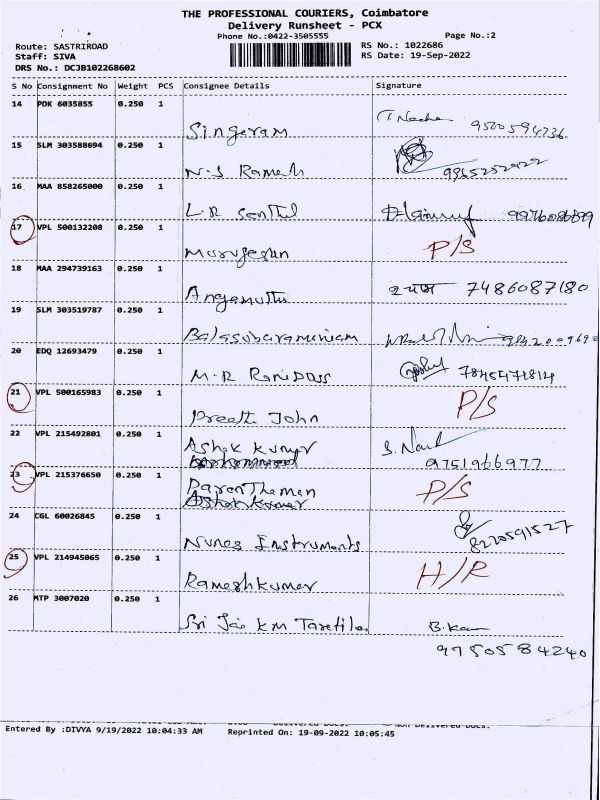 THE PROFESSIONAL COURIERS, Coimbatore
Delivery Runsheet - PCX
Phone No.:0422-3505555 Page No.:2
Route: SASTRIROAD RS No.: 1022686
Staff: SIVA RS Date: 19-Sep-2022
DRS No.: DCJB102268602
S No Consignment No Weight PCS Consignee Details Signature
14 PDK 6035855 0.250 1
Singaram 9500594736
15 SLM 303588694 0.250 1
N.S Ramesh 9965252922
16 MAA 858265000 0.250 1
L.R Senthil
17 VPL 500132208 0.250 1
Murugesan P/S
18 MAA 294739163 0.250 1
Angamuttu 7486087180
19 SLM 303519787 0.250 1
Balasubaramaniam
20 EDQ 12693479 0.250 1
M.R Ranidass
21 VPL 500165983 0.250 1
Preeth John P/S
22 VPL 215492801 0.250 1
Ashok kumar
9751966977
23 VPL 215376650 0.250 1
P/S
24 CGL 60026845 0.250 1
Nunes Instruments 8220591527
25 VPL 214945065 0.250 1
Rameshkumar H/R
26 MTP 3007020 0.250 1
Sri Jai KM
9750584240
Entered By :DIVYA 9/19/2022 10:04:33 AM Reprinted On: 19-09-2022 10:05:45